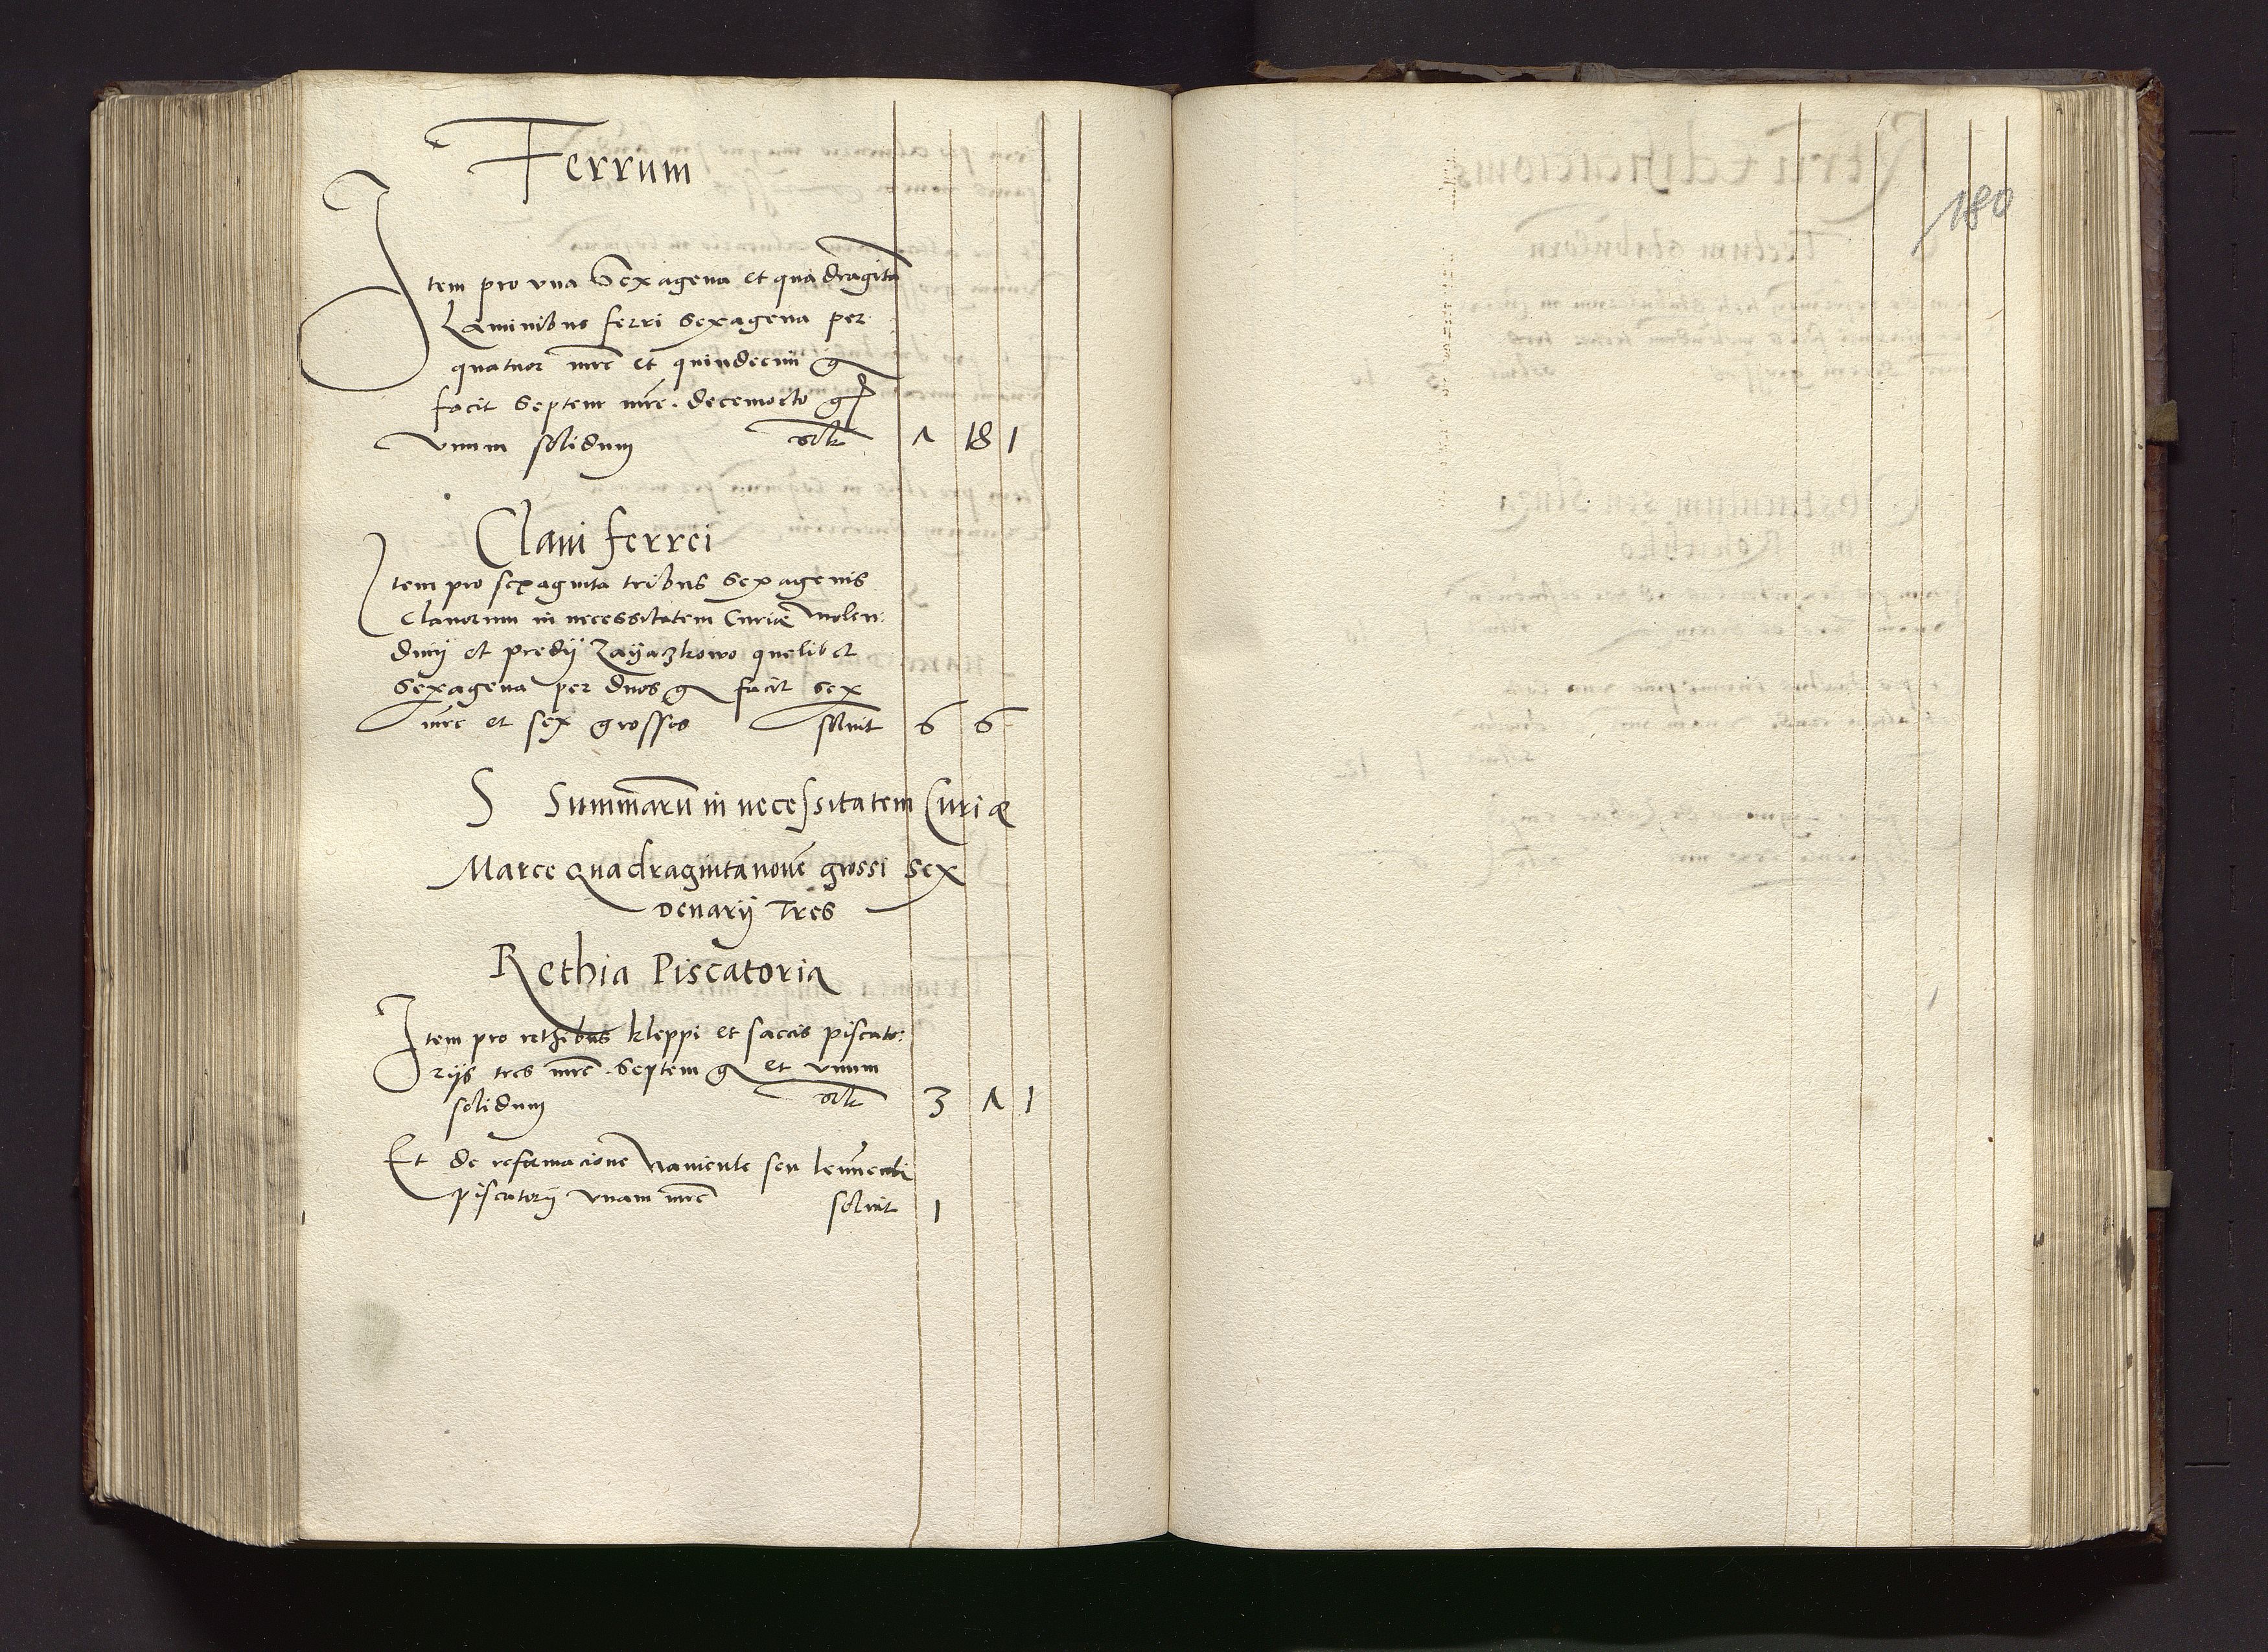 Ferrum
Item pro vna Sexagena et quadraginta
Laminibus ferri sexagena per
quatuor mrc et quindecim g
facit septem mrc. decemocto g
vnum solidum 7 18 1
Claui ferrei
Item pro sexaginta tribus sexagenis
Clauorum in necessitatem Curiæ molen:
dinij et predij Zayaczkowo quelibet
sexagena per duos g facit sex
mrc et sex grossos soluit 6 6
S Summarū in necessitatem Curiæ
Marce Quadragintanouē grossi sex
Denarij Tres
Rethia Piscatoria
Item pro rethibus kleppi et saccis piscato:
rijs tres mrc. septem g et vnum
solidum 3 7 1
Et de reformacione nauicule seu
piscatorij vnam mrc soluit 1
180